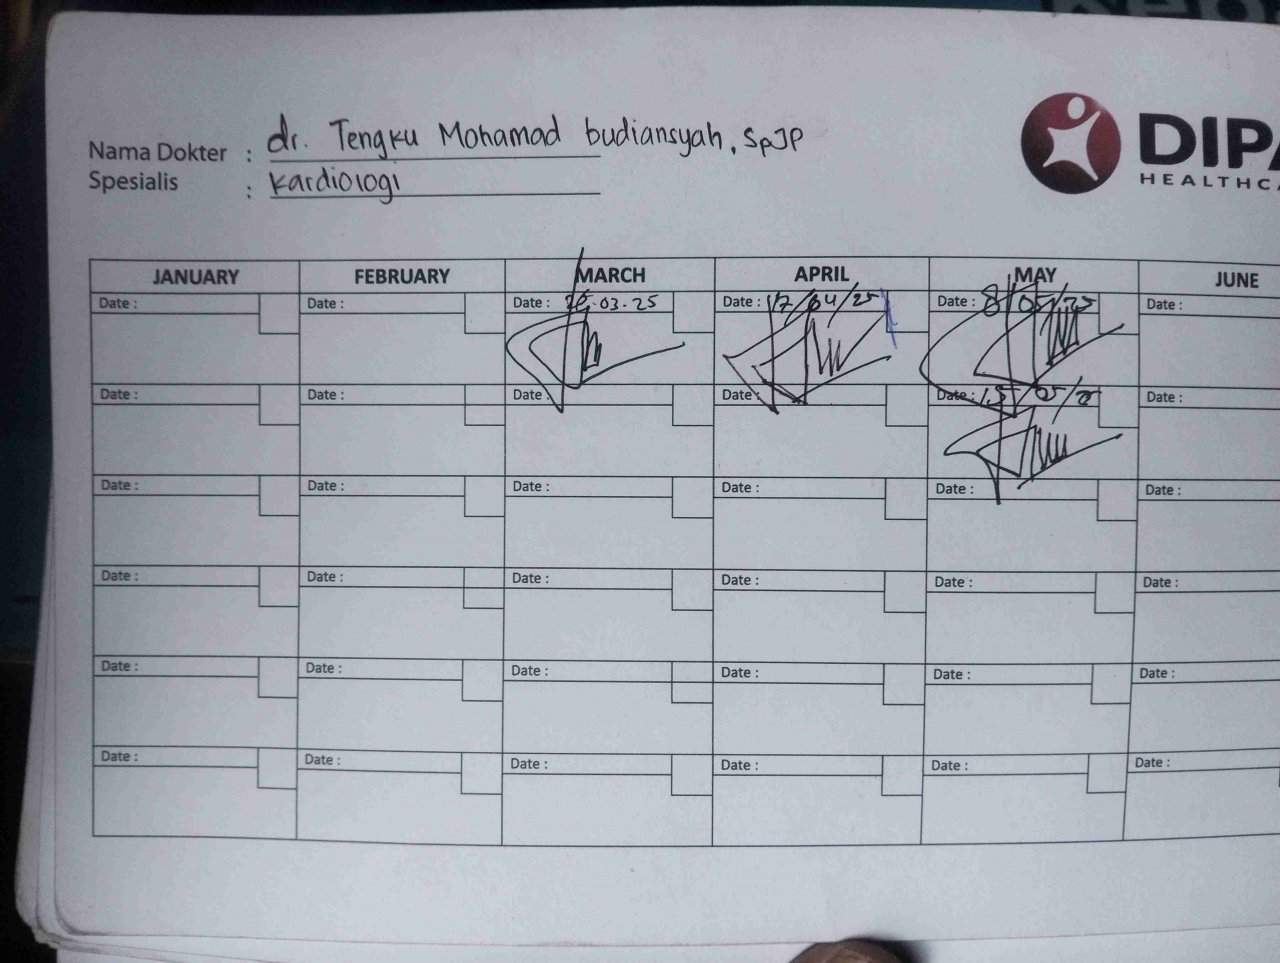 Nama Dokter : dr. Tengku Mohamad budiansyah, SpJP
Spesialis : Kardiologi
DIPA
HEALTHCA
JANUARY FEBRUARY MARCH APRIL MAY JUNE
Date : Date : Date : .03.25 Date : 17/04/25 Date : 8/05/25 Date :
Date : Date : Date : Date : Date : 15/05/25 Date :
Date : Date : Date : Date : Date : Date :
Date : Date : Date : Date : Date : Date :
Date : Date : Date : Date : Date : Date :
Date : Date : Date : Date : Date : Date :